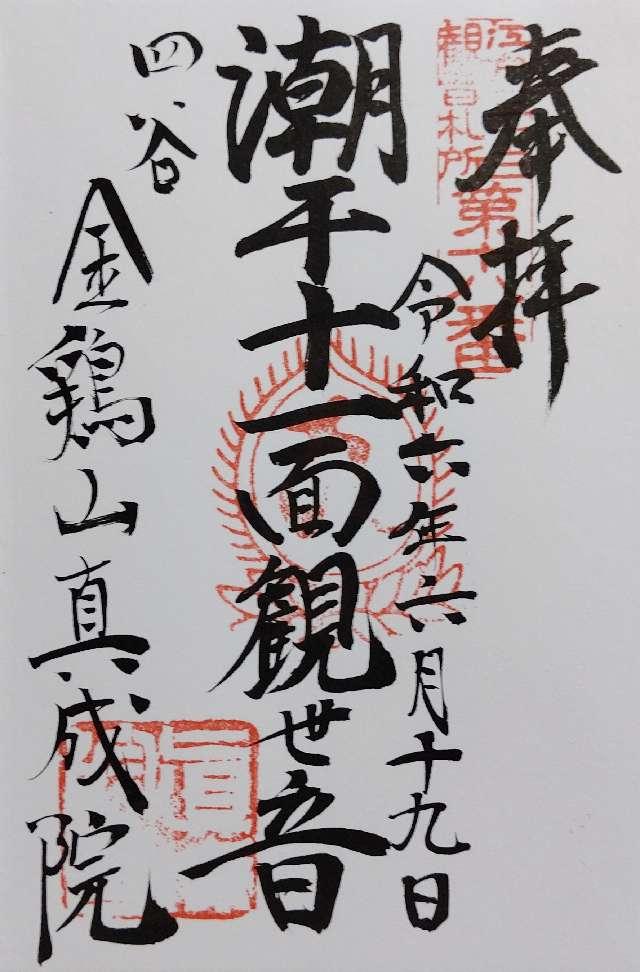 奉拝
江戸三十三
観音札所
第十八番
令和六年六月十九日
潮干十一面観世音
四谷
金鶏山真成院